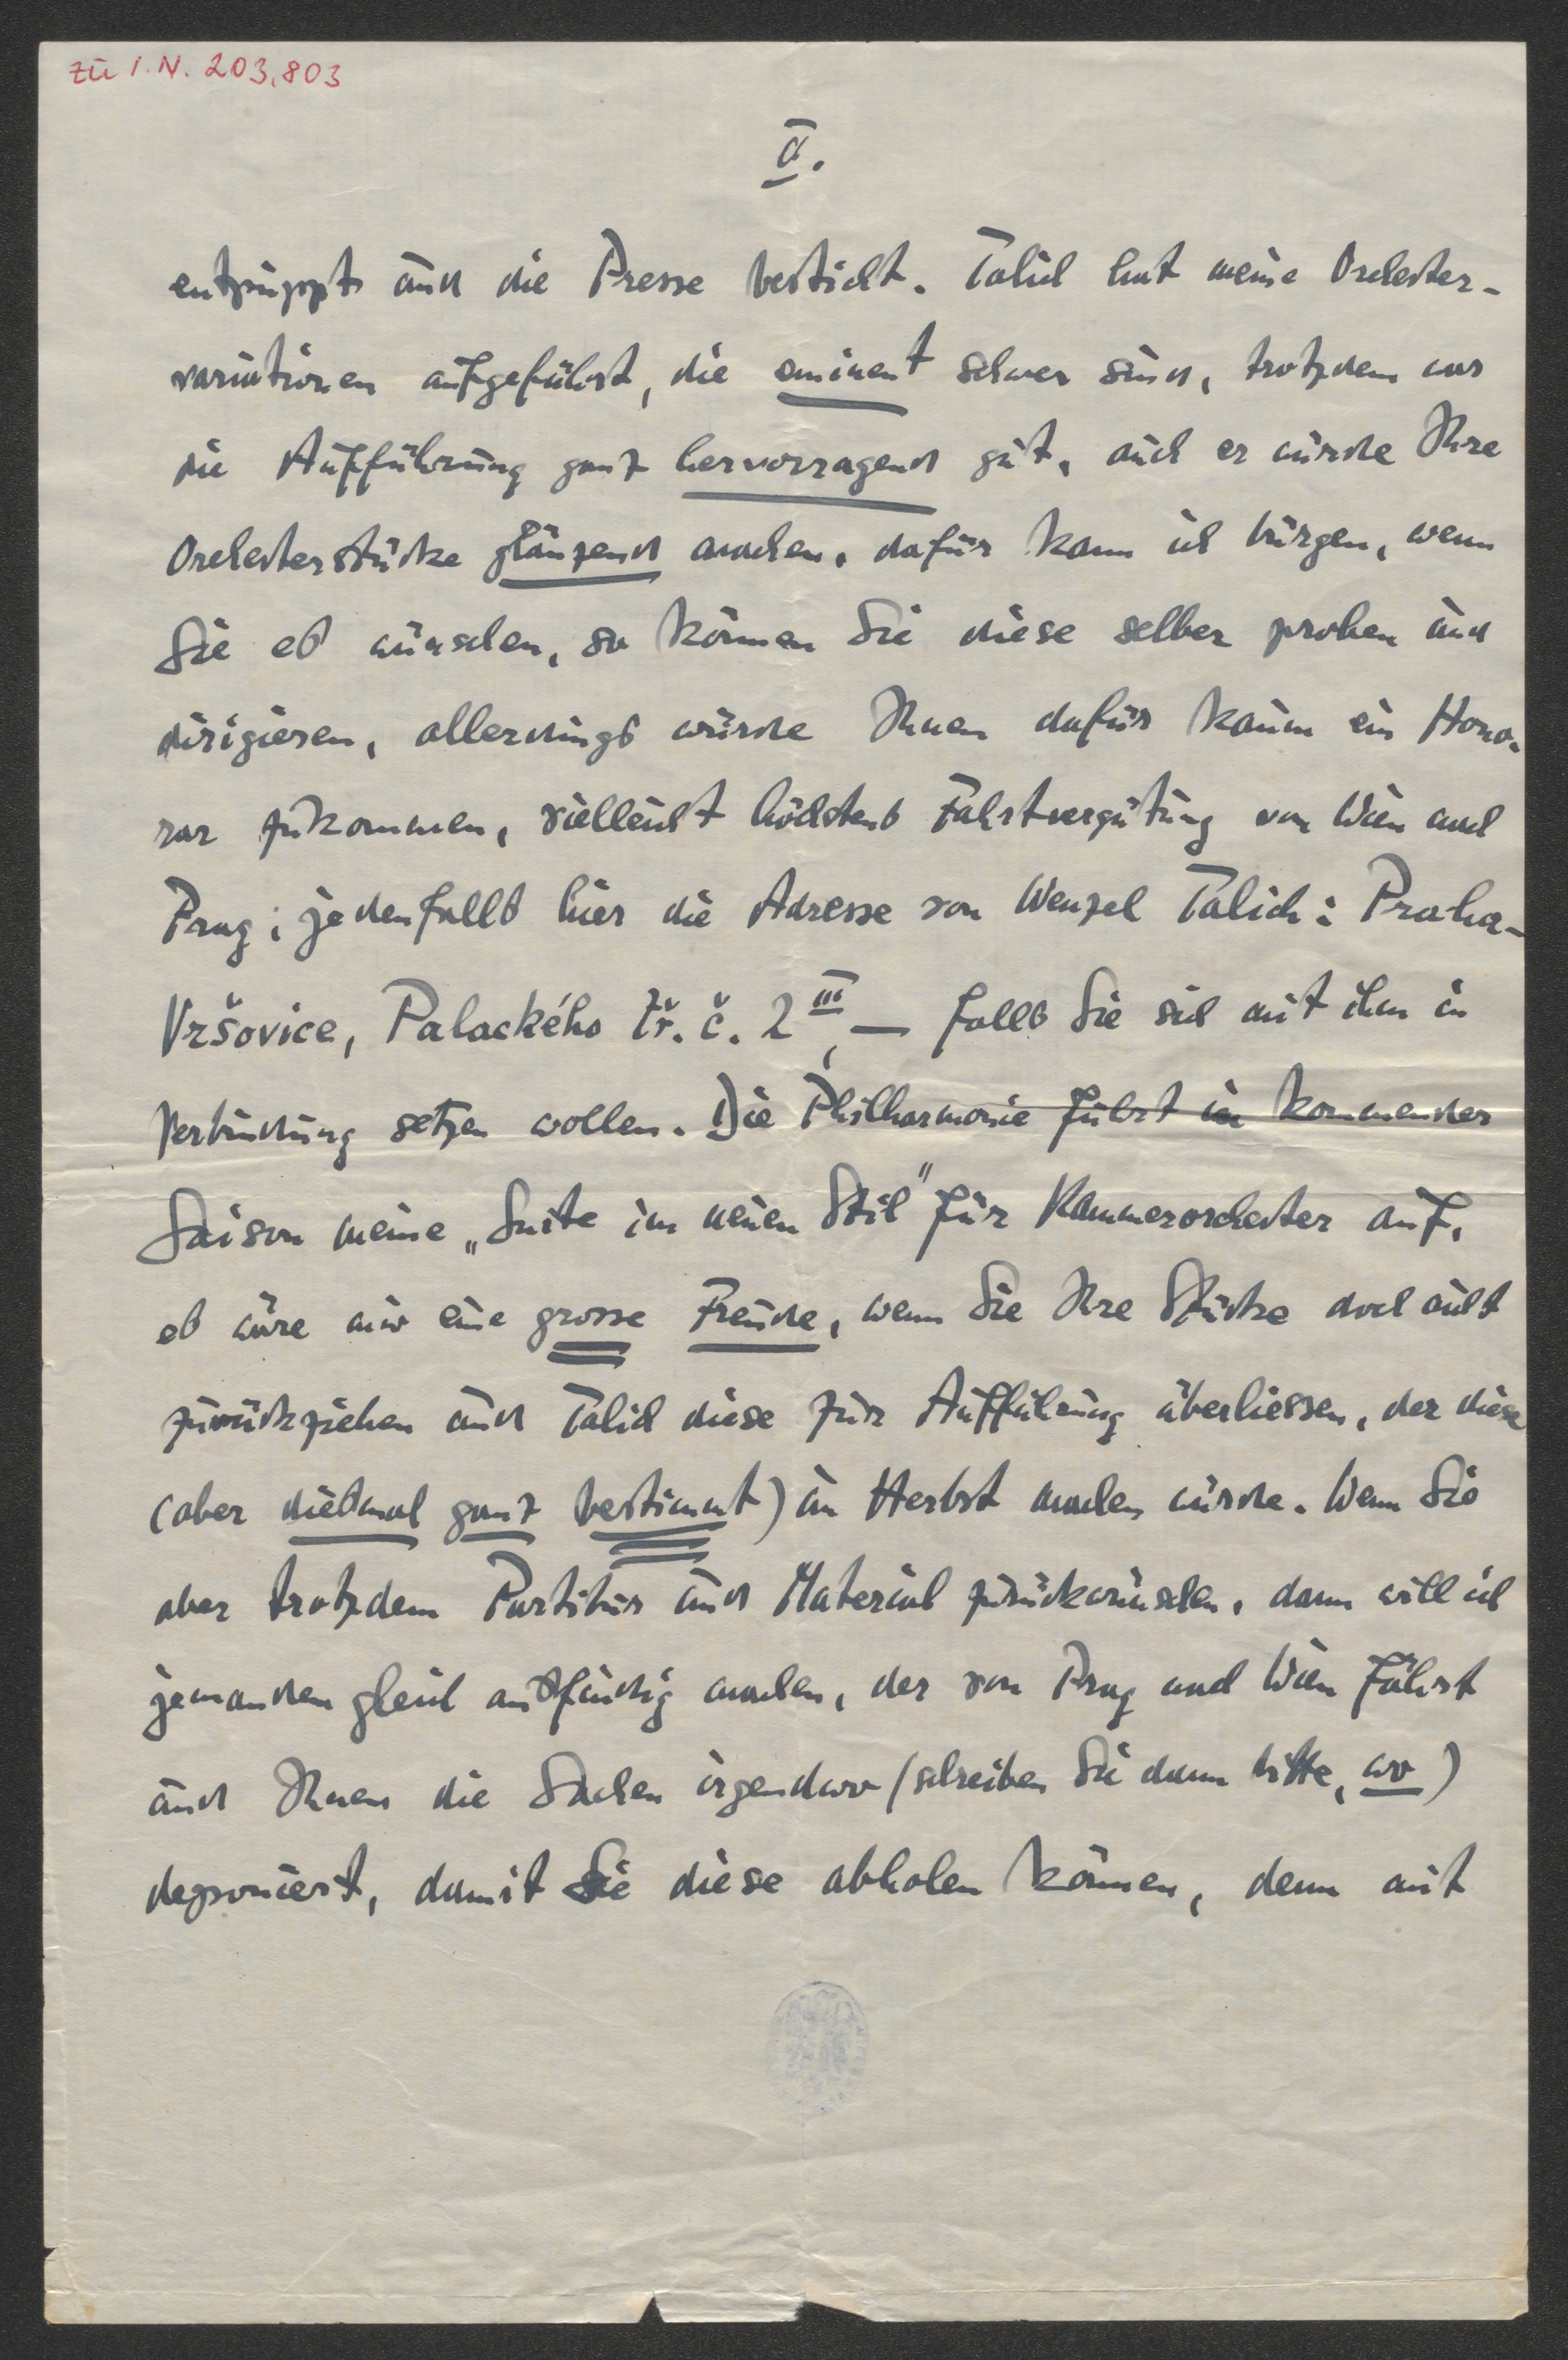 zu I. N. 203.803
V.
entpuppt und die Presse besticht. Talich hat meine Orchester-
variationen aufgeführt, die eminent schwer sind, trotzdem war
die Aufführung ganz hervorragend gut, auch er würde Ihre
Orchesterstücke glänzend machen, dafür kann ich bürgen, wenn
Sie es wünschen, so können Sie diese selber proben und
dirigieren, allerdings würde Ihnen dafür kaum ein Hono-
rar zukommen, vielleicht höchstens Fahrtvergütung von Wien nach
Prag; jedenfalls hier die Adresse von Wenzel Talich: Praha-
Vršovice, Palackého tř. č. 2 III, — falls Sie sich mit ihm in
Verbindung setzen wollen. Die Philharmonie führt in kommender
Saison meine „Suite im neuen Stil" für Kammerorchester auf,
es wäre mir eine grosse Freude, wenn Sie Ihre Stücke doch nicht
zurückziehen und Talich diese zur Aufführung überliessen, der diese
(aber diesmal ganz bestimmt) im Herbst machen würde. Wenn Sie
aber trotzdem Partitur und Material zurückwünschen, dann will ich
jemanden gleich ausfindig machen, der von Prag nach Wien fährt
und Ihnen die Sachen irgendwo (schreiben Sie dann bitte, wo)
deponiert, damit Sie diese abholen können, denn mit